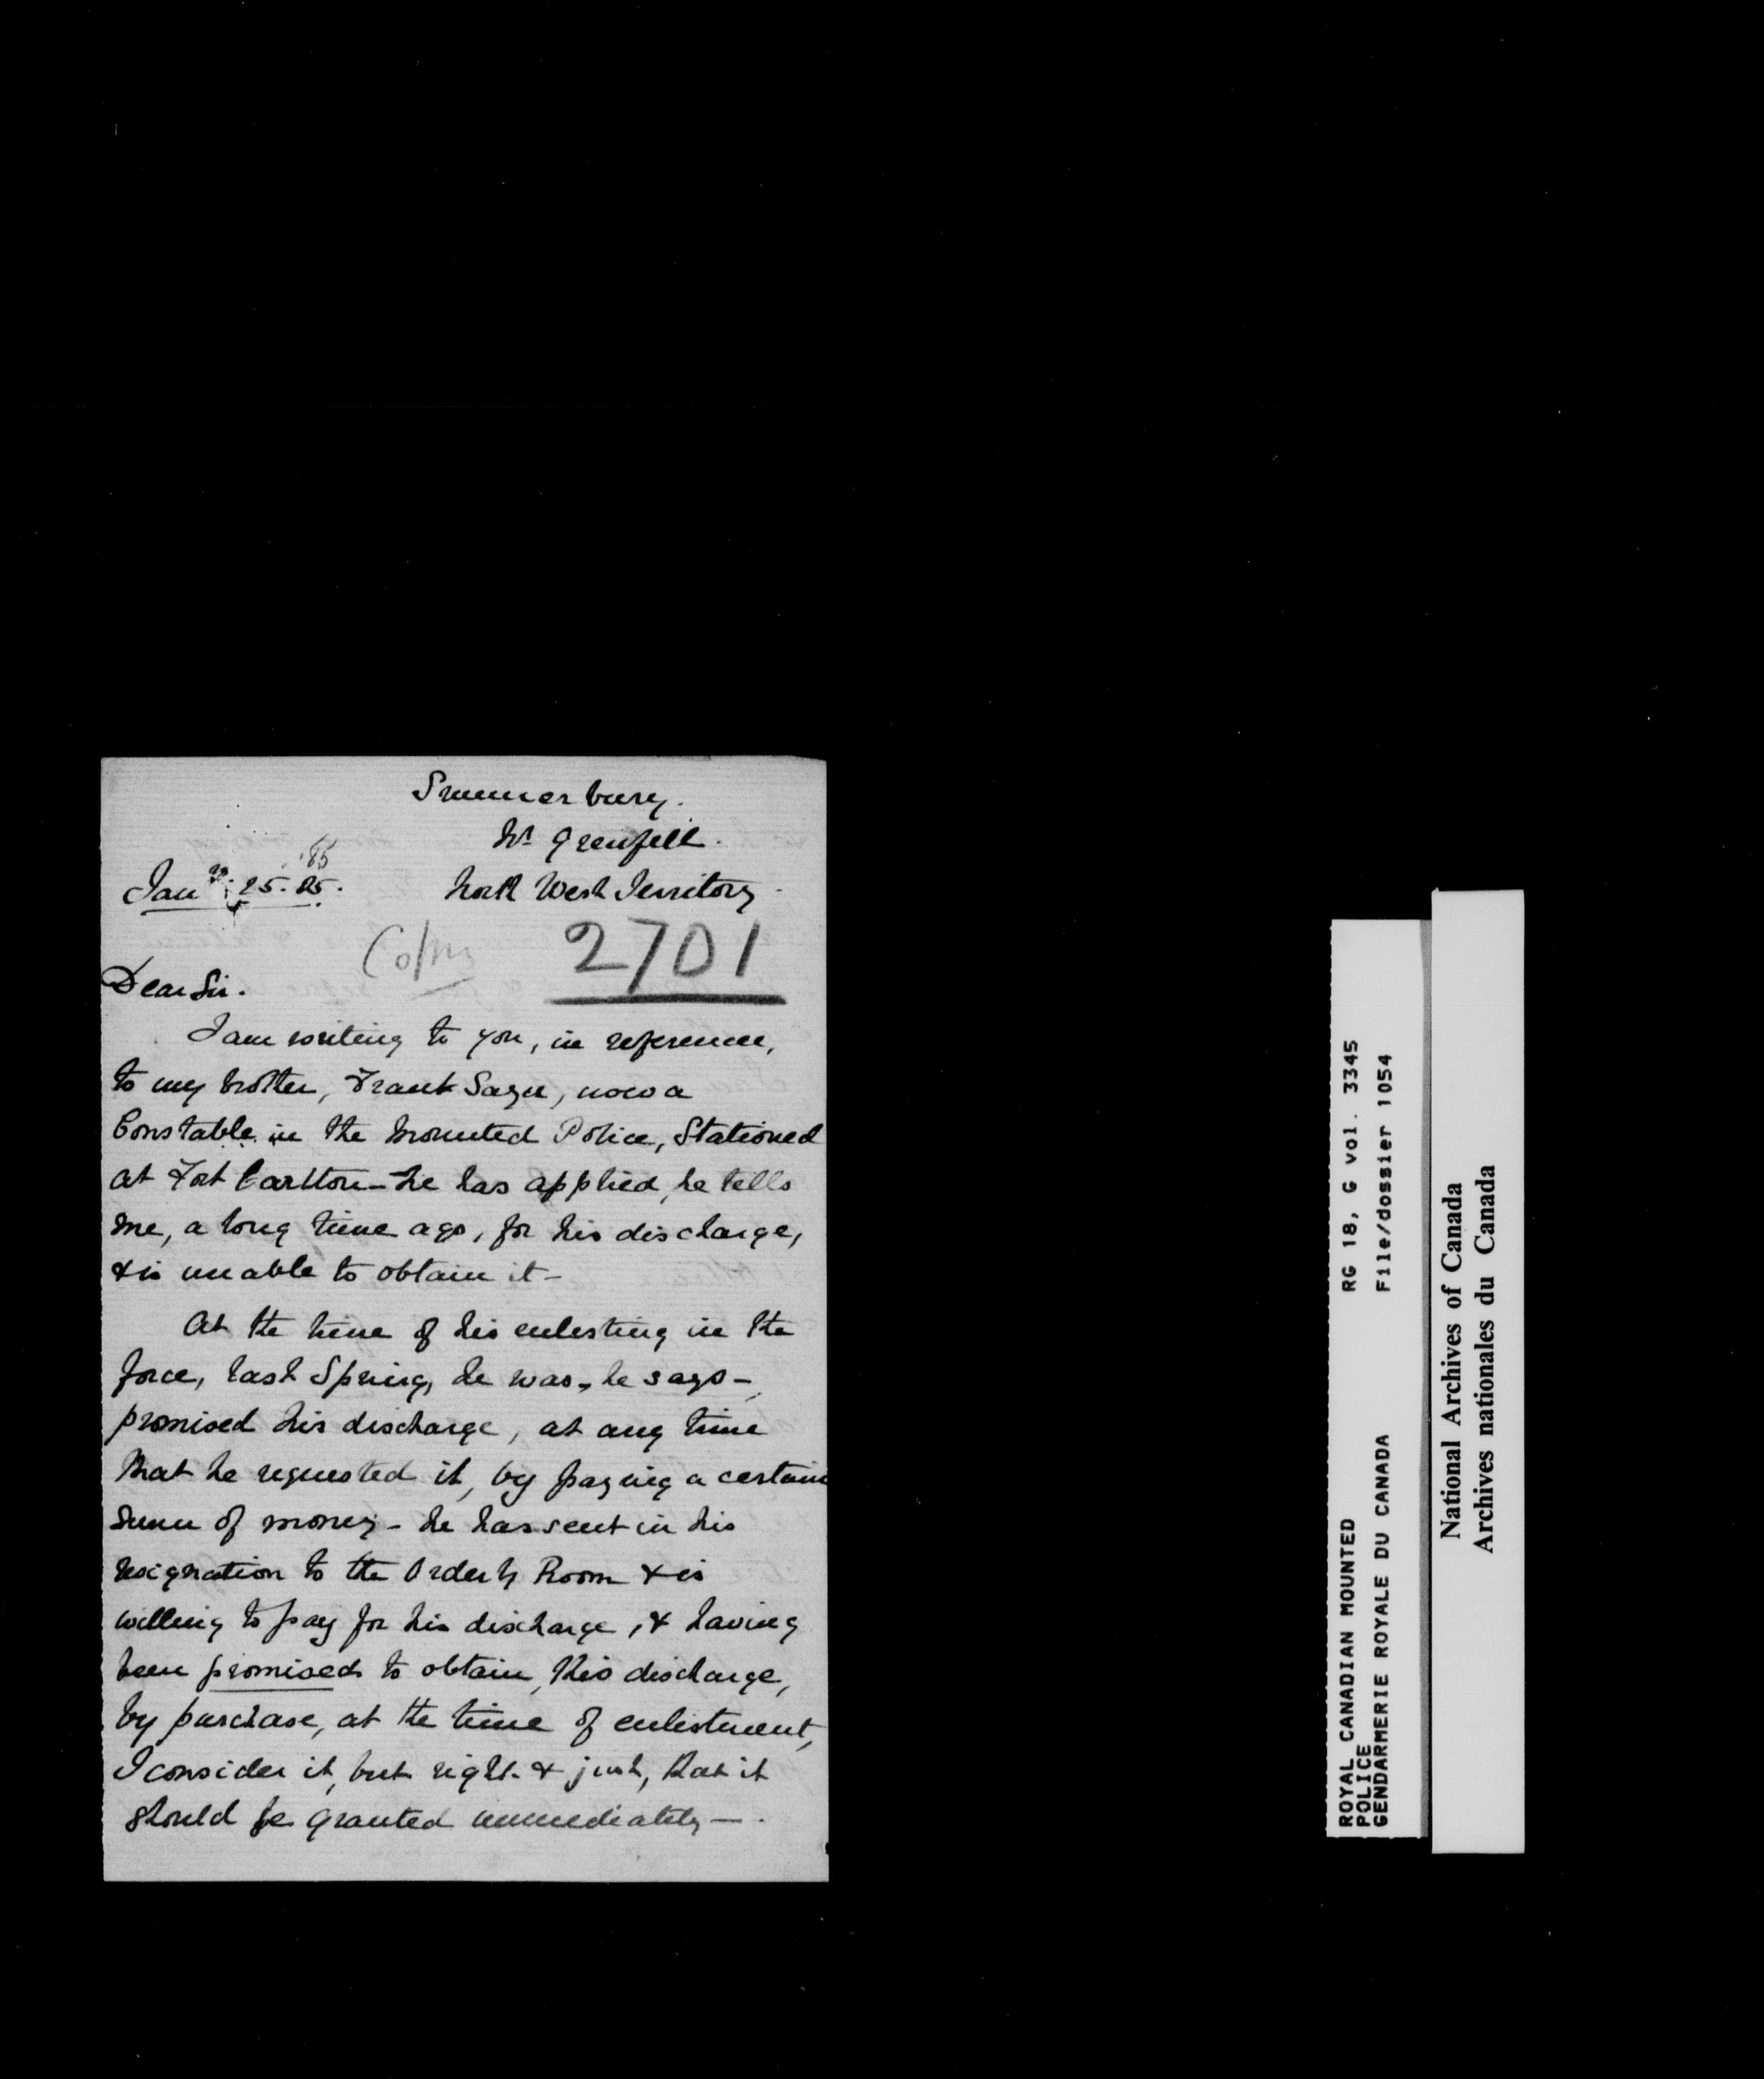 Summerbury.
Nr Grenfell.
North West Territory
Jany 25. 85.
'85
2701
Dear Sir.
I am writing to you, in reference,
to my brother, Frank Sayer, now a
Constable in the Mounted Police, Stationed
at Fort Carlton - he has applied, he tells
me, a long time ago, for his discharge,
& is unable to obtain it -
At the time of his enlisting in the
force, last Spring, he was, he says -
promised his discharge, at any time
that he requested it, by paying a certain
sum of money - he has sent in his
resignation to the Orderly Room & is
willing to pay for his discharge, & having
been promised to obtain, this discharge,
by purchase, at the time of enlistment,
I consider it, but right & just, that it
should be granted immediately -
ROYAL CANADIAN MOUNTED RG 18, G vol. 3345
POLICE
GENDARMERIE ROYALE DU CANADA File/dossier 1054
National Archives of Canada
Archives nationales du Canada